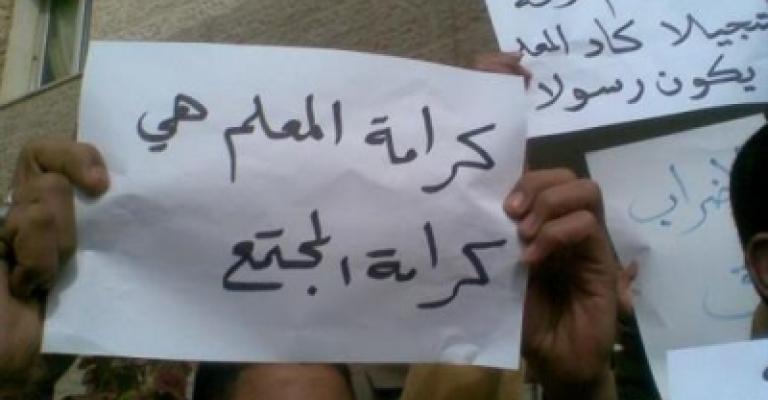 كرامة المعلم هي
كرامة المجتمع
تبجيلا كاد المعلم
يكون رسولا